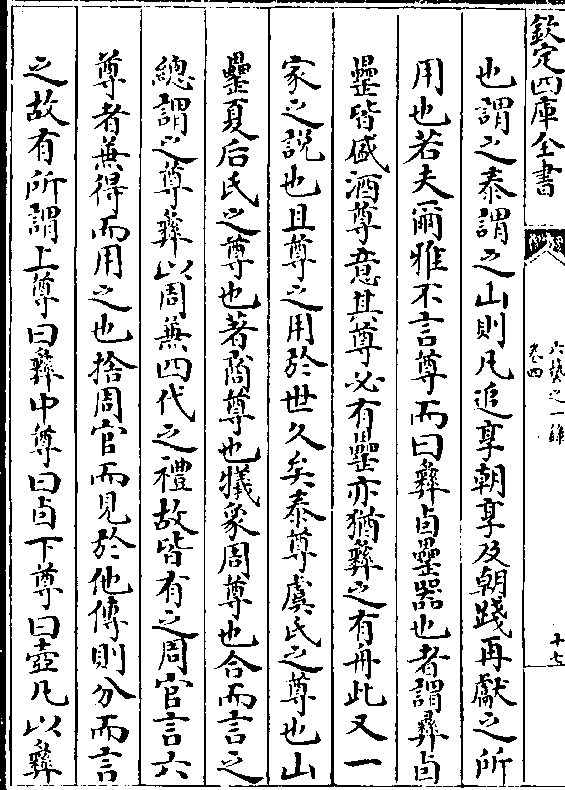 欽定四庫全書
六藝之一錄
卷四
十七
也謂之泰謂之山則凡追享朝享及朝踐再獻之所
用也若夫爾雅不言尊而曰彝卣罍器也者謂彝卣
罍皆盛酒尊意其尊必有罍亦猶彝之有舟此又一
家之説也且尊之用於世久矣泰尊虞氏之尊也山
罍夏后氏之尊也著商尊也犧象周尊也合而言之
總謂之尊彝以周兼四代之禮故皆有之周官言六
尊者兼得而用之也捨周官而見於他傳則分而言
之故有所謂上尊曰彝中尊曰卣下尊曰壺凡以彝